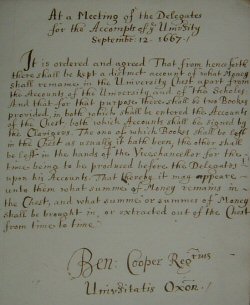 At a Meeting of the Delegates
for the Accompts of yᵉ Univʳsity
Septembr. 12. 1667./
It is ordered and agreed That from henceforth
there shall be kept a distinct account of what Money
shall remaine in the University Chest apart from
the Accounts of the University and of the Scholes
And that for that purpose There shall be two Books
provided in both which shall be entered the Accounts
of the Chest both which Accounts shall bee signed by
the Clavigers. The one of which Bookes shall be left
in the Chest as usually it hath been, the other shall
be left in the hands of the Vicechancellor for the
time being to be produced before the Delegates
upon his Accounts. That thereby it may appeare
unto them what summe of Money remains in
the Chest, and what summe or summes of Money
shall be brought in, or extracted out of the Chest
from time to time.
Ben: Cooper Regʳᵃʳⁱᵘˢ
Univʳsitatis Oxon./